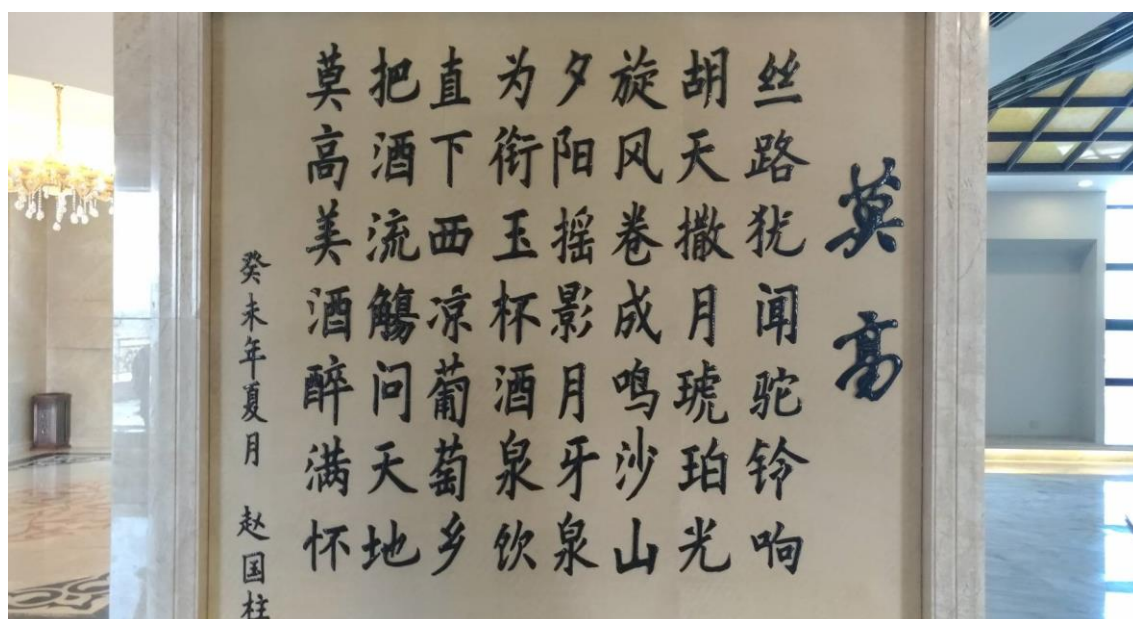 莫高
丝路犹闻驼铃响
胡天撒月琥珀光
旋风卷成鸣沙山
夕阳摇影月牙泉
为衔玉杯酒泉饮
直下西凉葡萄乡
把酒流觞问天地
莫高美酒醉满怀
癸未年夏月 赵国柱